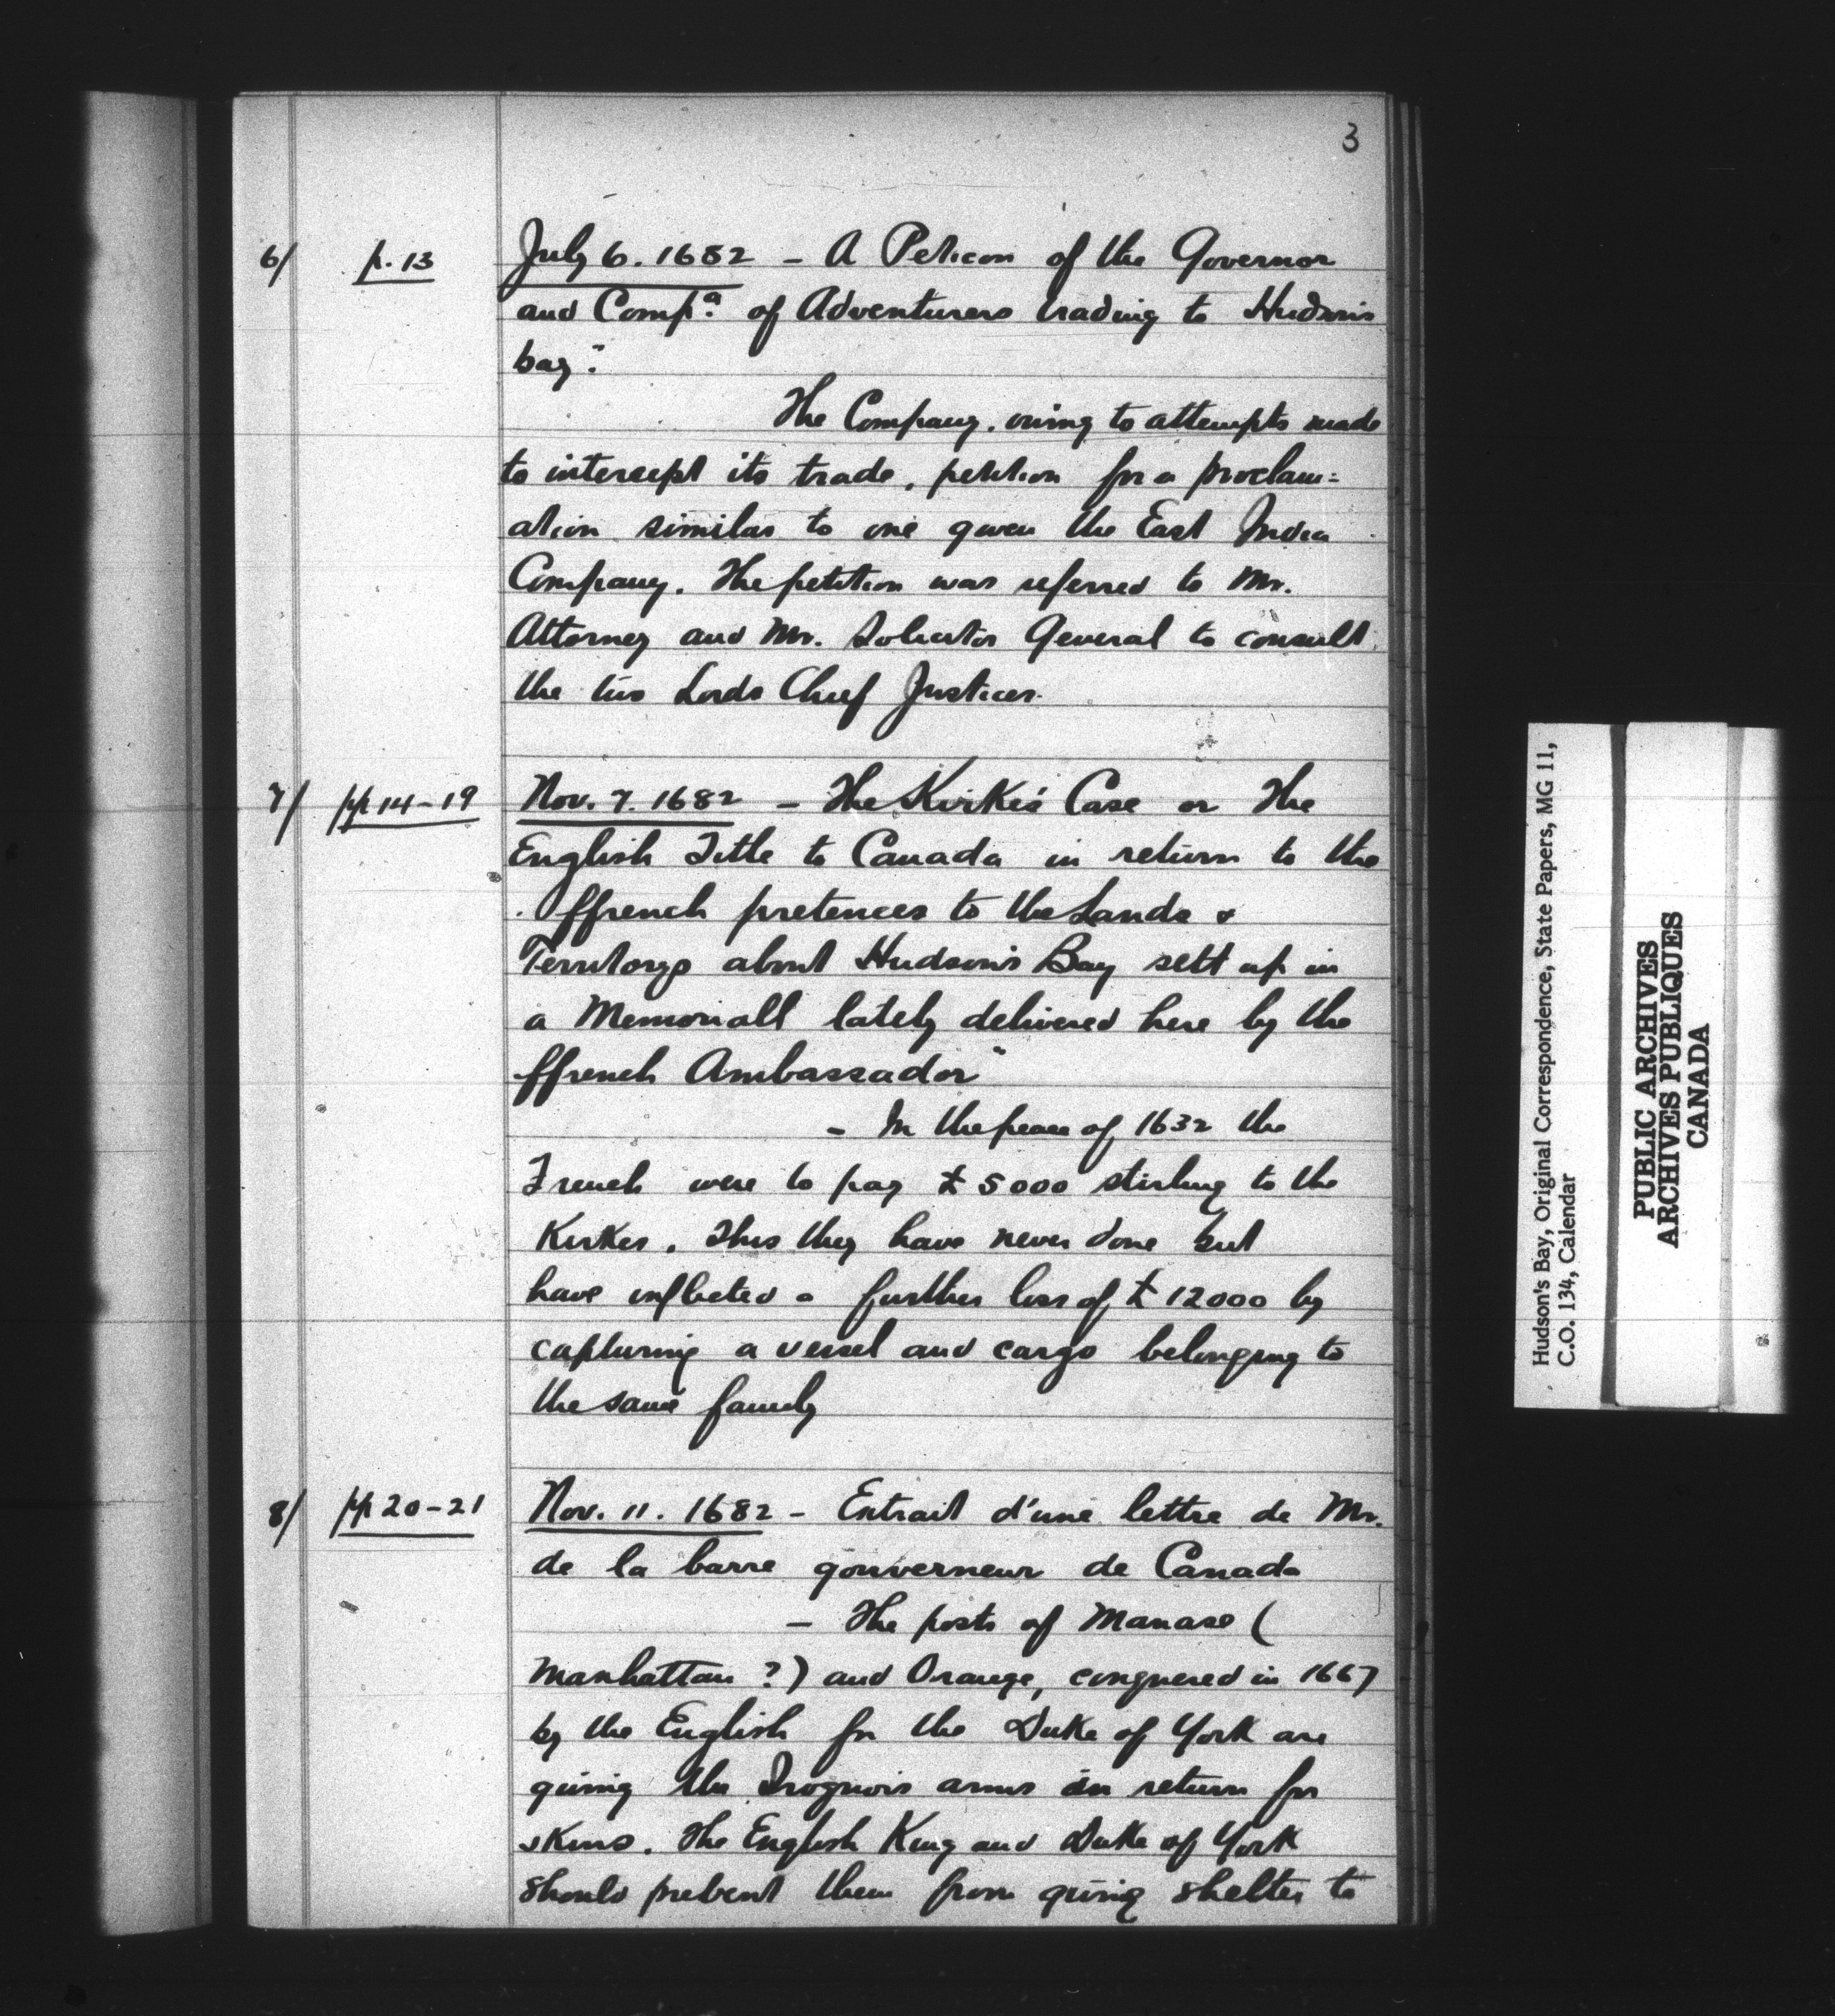 3
6/ p. 13 July 6. 1682 - A Peticon of the Governor
and Compa. of Adventurers trading to Hudson's
bay."
The Company, owing to attempts made
to intercept its trade, petition for a proclam=
ation similar to one given the East India
Company. The petition was referred to Mr.
Attorney and Mr. Solicitor General to consult
the two Lords Chief Justices.
7/ pp 14-19 Nov. 7. 1682 - The Kirke's Case or The
English Title to Canada in return to the
ffrench pretences to the Lands &
Territorys about Hudson's Bay sett up in
a Memoriall lately delivered here by the
ffrench Ambassador"
- In the peace of 1632 the
French were to pay £5000 stirling to the
Kirkes. This they have never done but
have inflicted a further loss of £12000 by
capturing a vessel and cargo belonging to
the same family
8/ pp 20-21 Nov. 11. 1682 - Extrait d'une lettre de Mr.
de la barre gouverneur de Canada
- The posts of Manase (
Manhattan?) and Orange, conquered in 1667
by the English for the Duke of York are
giving the Iroquois arms in return for
skins. The English King and Duke of York
should prevent them from giving shelter to
Hudson's Bay, Original Correspondence, State Papers, MG 11,
C.O. 134, Calendar
PUBLIC ARCHIVES
ARCHIVES PUBLIQUES
CANADA